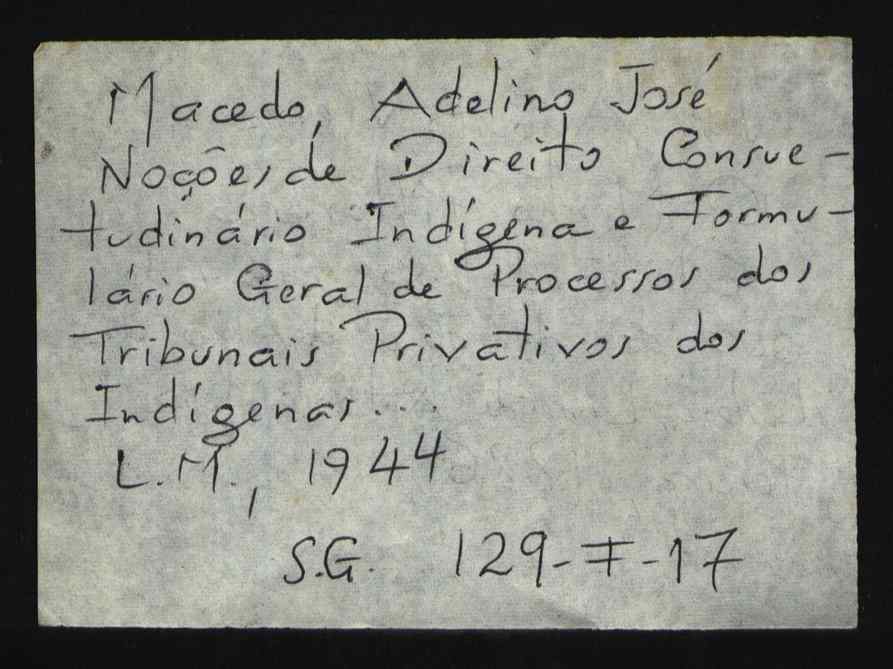 Macedo, Adelino José
Noções de Direito Consue-
tudinário Indígena e Formu-
lário Geral de Processos dos
Tribunais Privativos dos
Indígenas...
L.M., 1944
S.G. 129-F-17